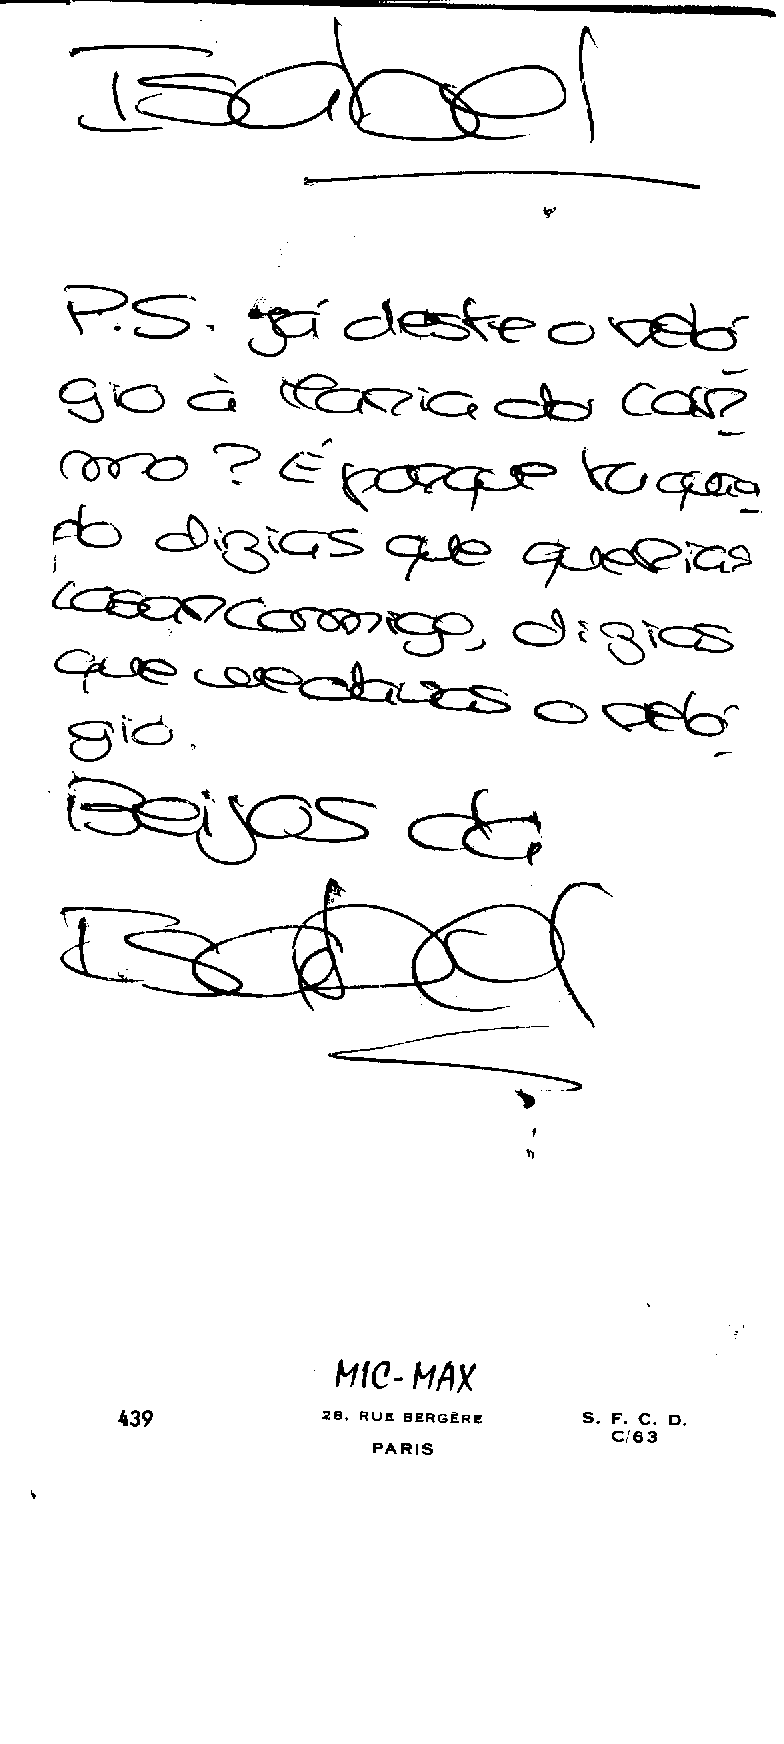 Isabel
P.S. já deste o reló-
gio à Maria do Car-
mo? É porque tu quan-
do dizias que querias
casar comigo, dizias
que me davas o reló-
gio.
Beijos da
Isabel
MIC-MAX
439
28, RUE BERGÈRE
S. F. C. D.
C/63
PARIS